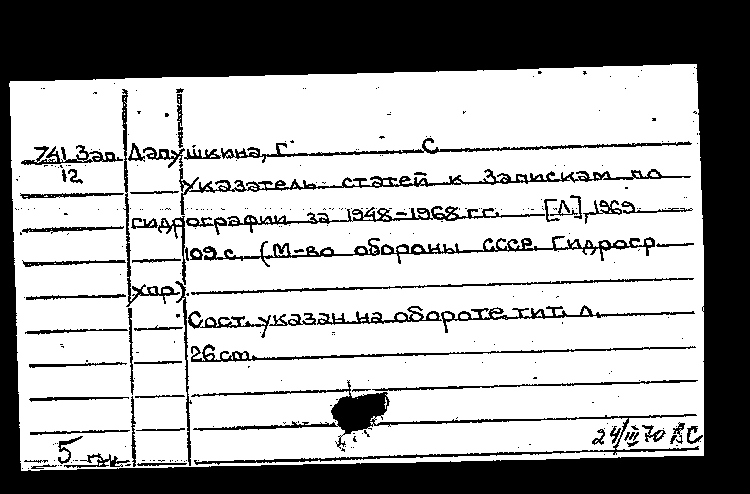 741 Зап. Лапушкина, Г С
12 Указатель статей к Запискам по
гидрографии за 1948-1968 гг. [Л.], 1969.
109 с. (М-во обороны СССР. Гидрогр.
упр.)
Сост. указан на обороте тит. л.
26 cm.
24/III 70 ВС
5